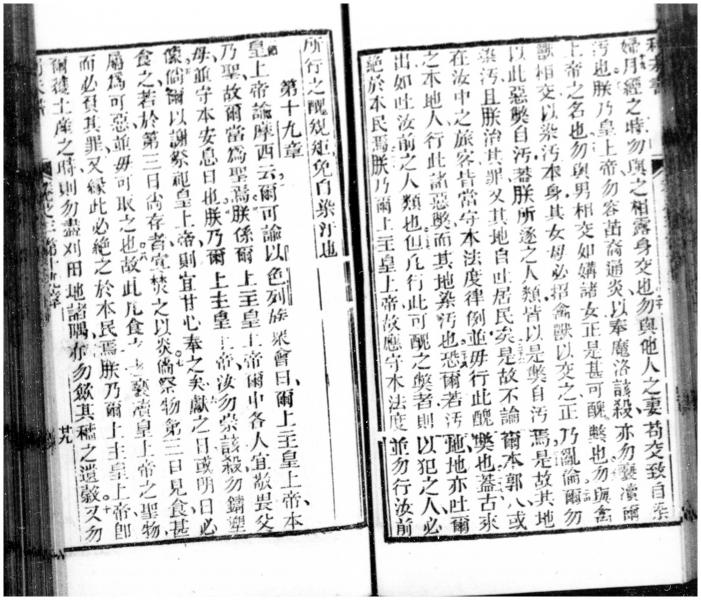 婦月經之時勿與之相露身交也勿與他人之妻苟交致自染
汚也朕乃皇上帝勿容苗裔通炎以奉魔洛該殺亦勿褻瀆爾
上帝之名也勿與男相交如媾諸女正是甚可醜弊也勿與禽
獸相交以染汚本身其女毋必招禽獸以交之正乃亂倫爾勿
以此惡弊自汚蓋朕所逐之人類皆以是弊自汚焉是故其地
染汚且朕治其罪又其地自吐居民矣是故不論爾本郭八或
在汝中之旅客皆當守本法度律例並毋行此醜弊也蓋古來
之本地人行此諸惡弊而其地染汚也恐爾若汚此地亦吐爾
出如吐汝前之人類也但凡行此可醜之弊者則以犯之人必
絶於本民焉朕乃爾上主皇上帝故應守本法度並勿行汝前
所行之醜規矩免自染汙也
第十九章
皇上帝諭摩西云爾可諭以色列族衆會曰爾上主皇上帝本
乃聖故爾當爲聖焉朕係爾上主皇上帝爾中各人宜敬畏父
母並守本安息日也朕乃爾上主皇上帝汝勿崇該殺勿鑄塑
像倘爾以謝祭祀皇上帝則宜甘心奉之矣獻之日或明日必
食之若於第三日尚存者宜焚之以炎倘祭物第三日見食甚
屬爲可惡並毋可取之也故此凡食者褻瀆皇上帝之聖物
而必負其罪又緣此必絶之於本民焉朕乃爾上主皇上帝卽
爾穫土產之時則勿盡刈田地諸隅亦勿歛其穡之遺穀又勿